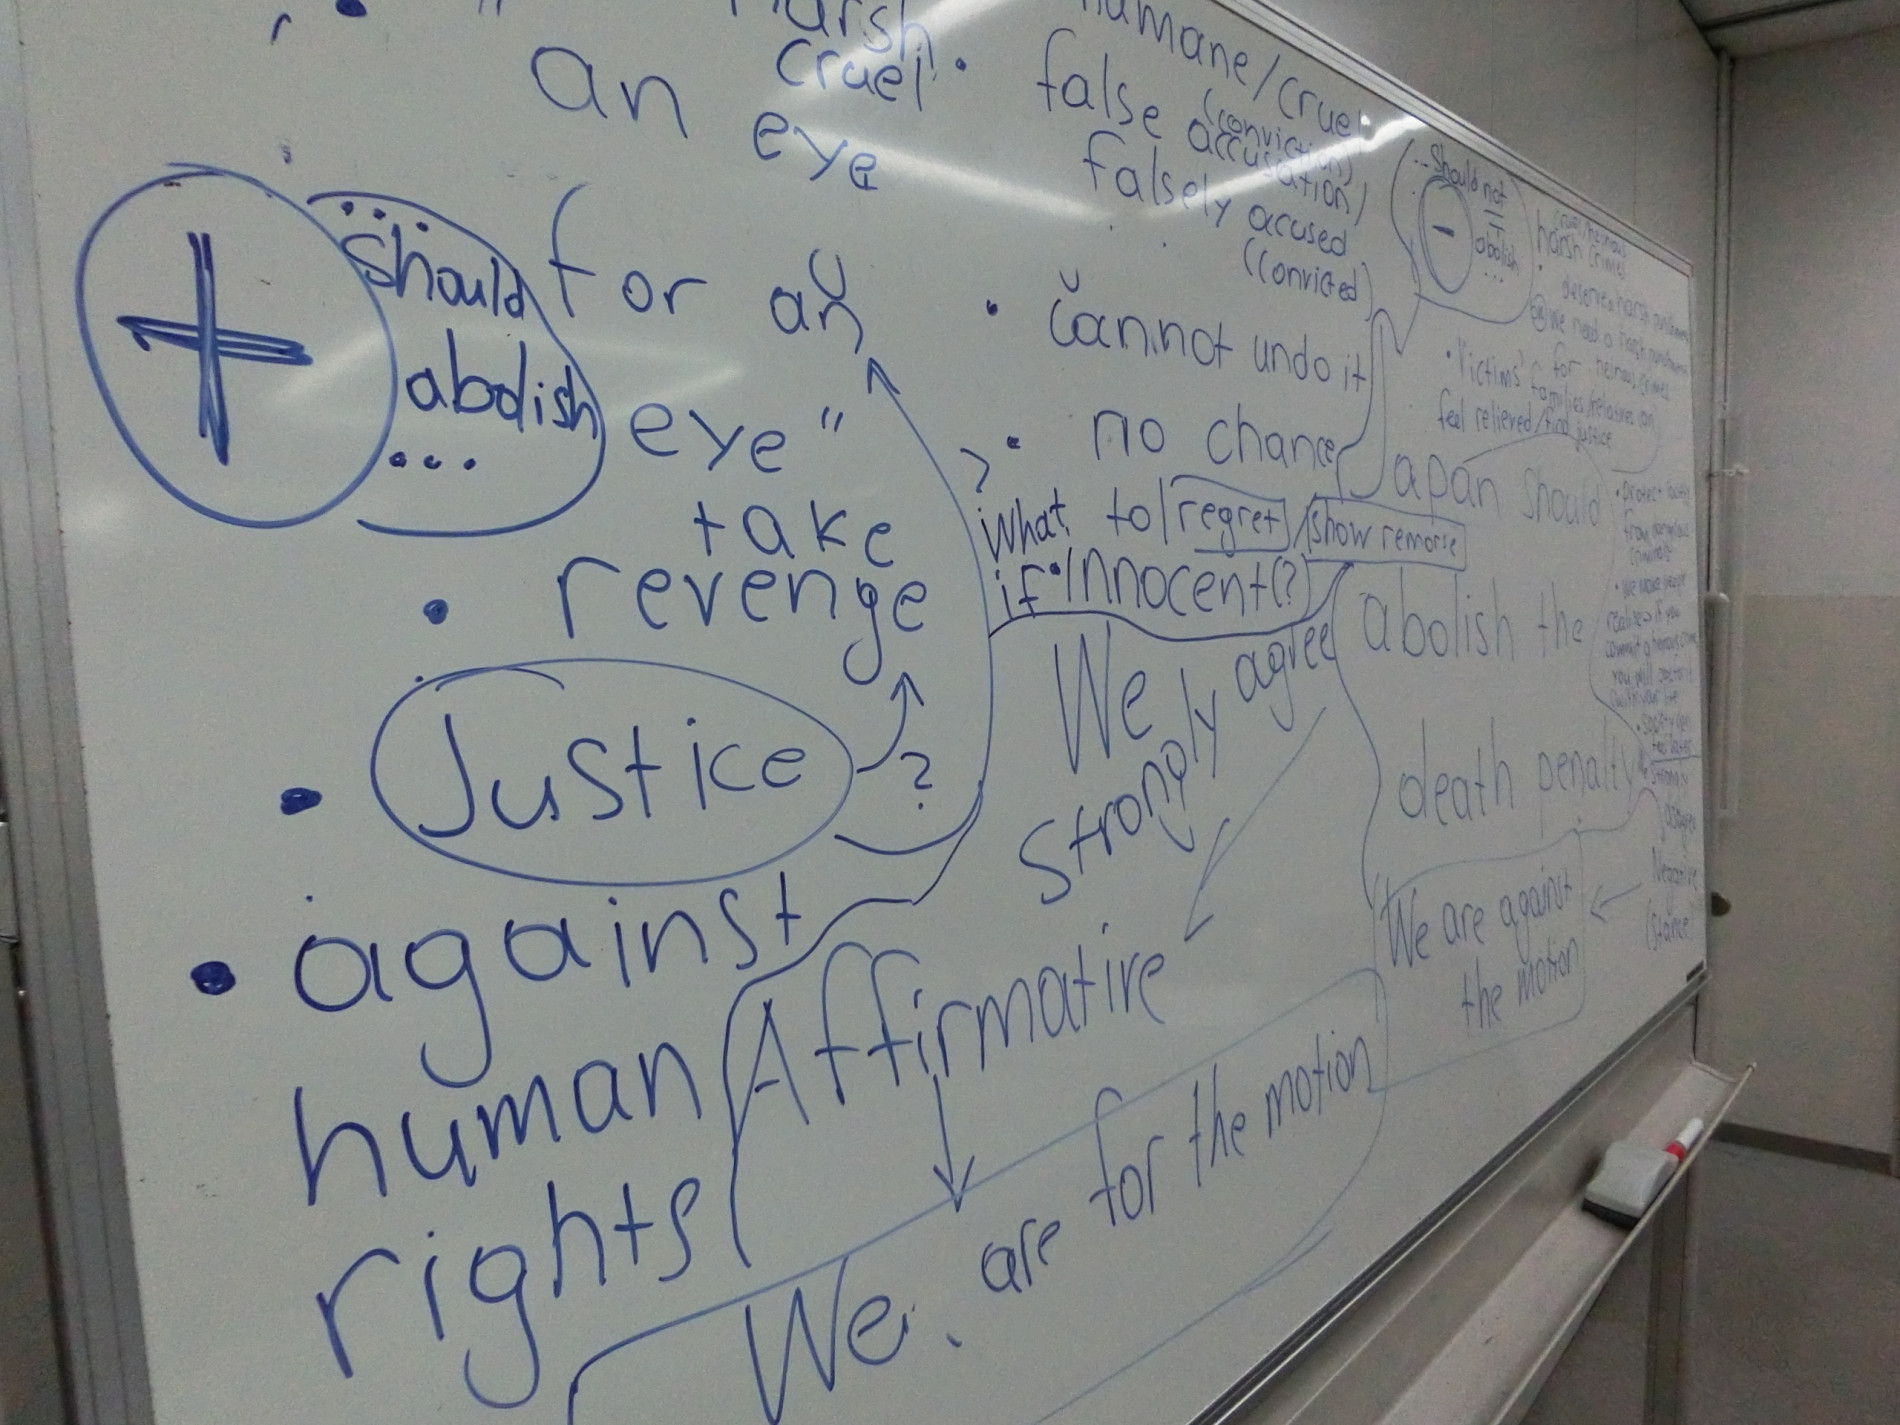 "
harsh
cruel
an
eye
for an
eye"
+
...
should
abolish
...
take
• revenge
• Justice
?
• against
human
rights
humane/cruel
• false accusation/
(conviction)
falsely accused
(convicted)
• cannot undo it
• no chance
to regret/show remorse
What
if innocent(?)
We
strongly agree
Affirmative
We are for the motion
Japan should
abolish the
death penalty
... should not
-
abolish
...
cruel/heinous
harsh crimes
deserve harsh
We need a harsh
for heinous crimes
• Victims' families/relatives can
feel relieved/find justice
• protect
from dangerous
criminals
• We make
realize if you
commit a heinous
you will
with your life
strongly
disagree
Negative
(stance)
We are against
the motion